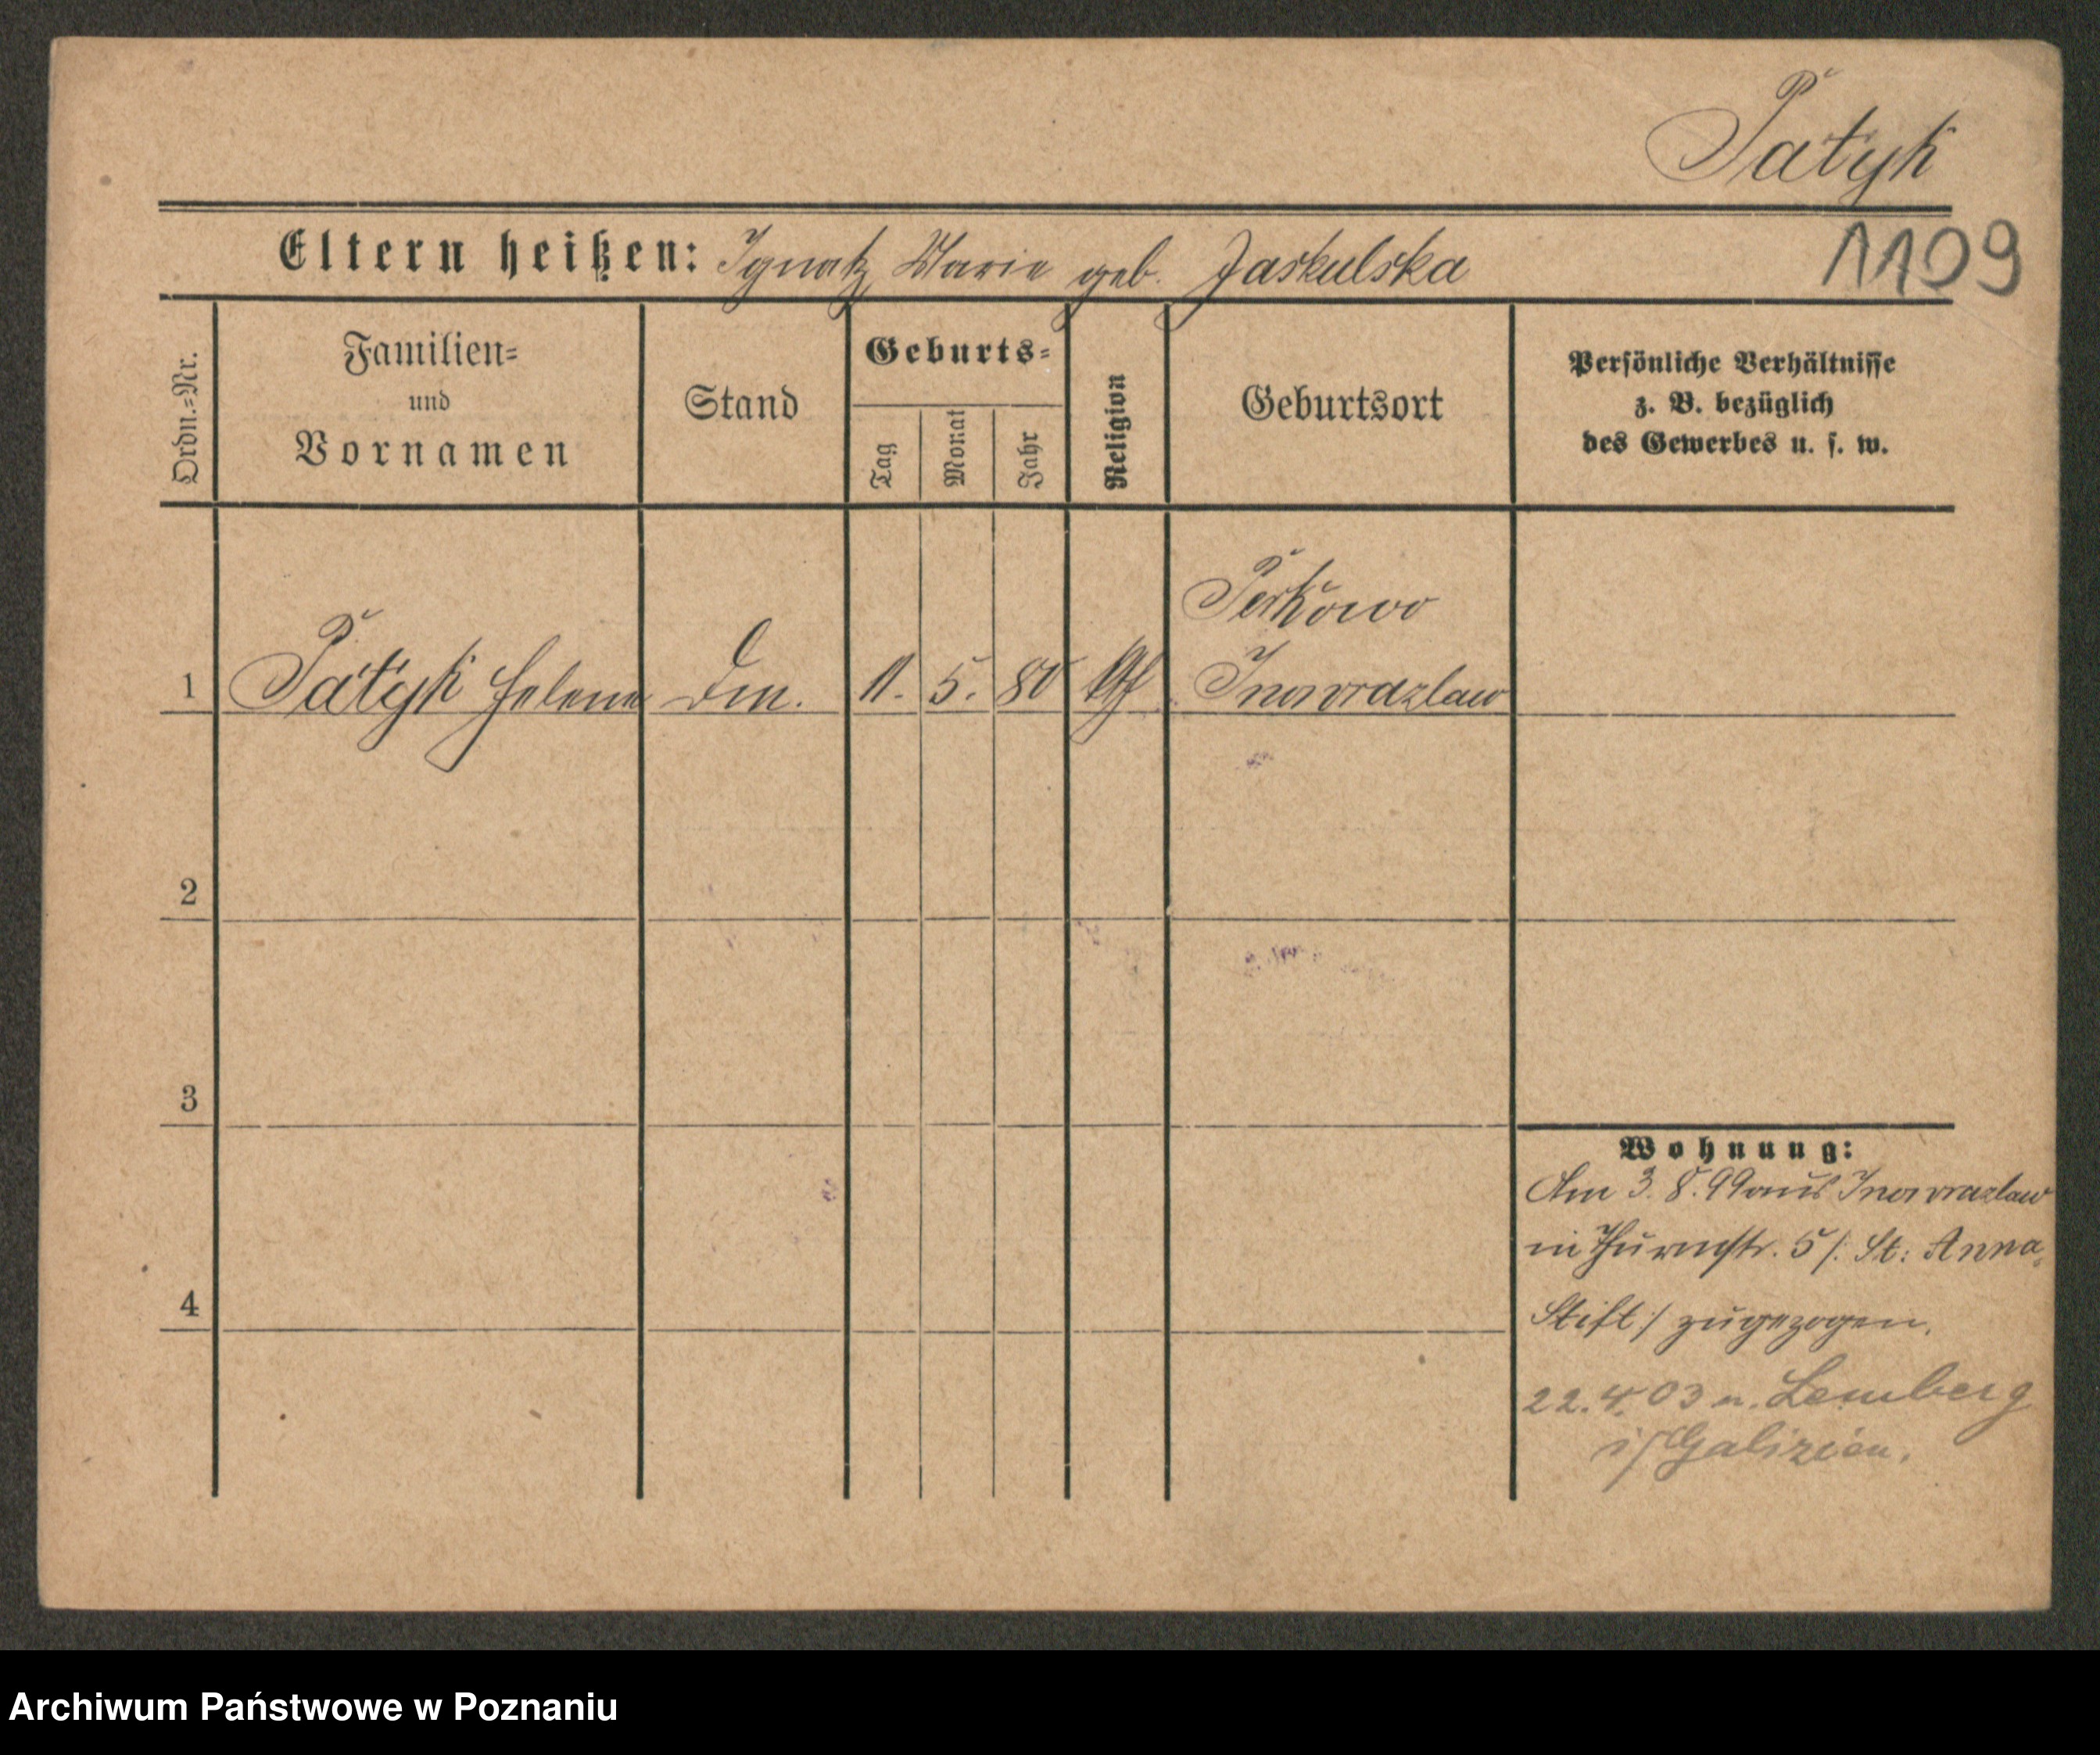 Patyk
Eltern heißen: Ignatz, Marie geb. Jaskulska
1109
Ordn.=Nr.
Familien=
und
Vornamen
Stand
Geburts=
Tag
Monat
Jahr
Religion
Geburtsort
Persönliche Verhältnisse
z. B. bezüglich
des Gewerbes u. s. w.
Perkowo
1 Patyk Helene 11. 5. 80 kth Inowrazlaw
2
3
4
Wohnung:
Am 3. 8. 99 aus Inowrazlaw
in Thurmstr. 5 /: St: Anna
Stift :/ zugezogen.
22.4.03 n. Lemberg
i/Galizien.
Archiwum Państwowe w Poznaniu